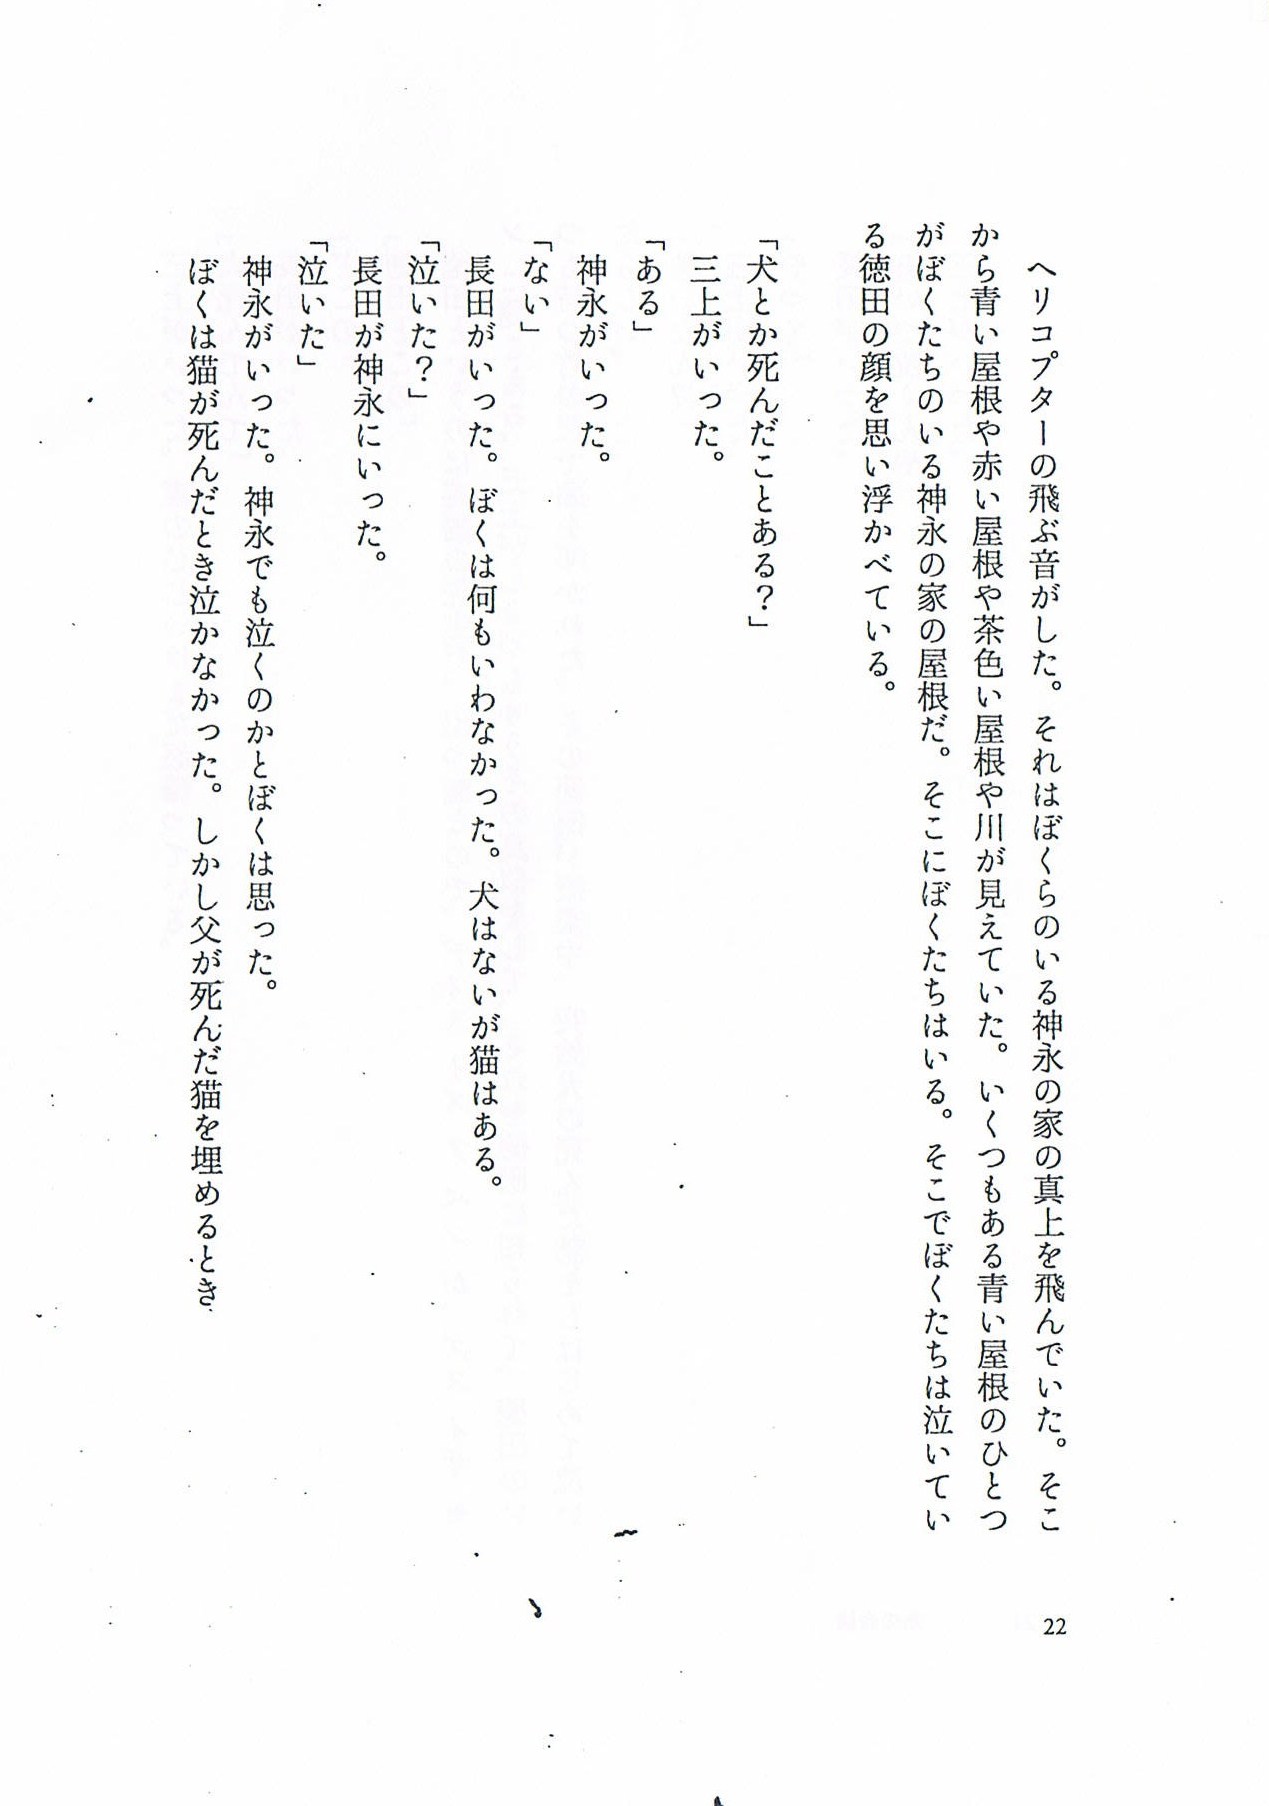 ヘリコプターの飛ぶ音がした。それはぼくらのいる神永の家の真上を飛んでいた。そこ
から青い屋根や赤い屋根や茶色い屋根や川が見えていた。いくつもある青い屋根のひとつ
がぼくたちのいる神永の家の屋根だ。そこにぼくたちはいる。そこでぼくたちは泣いてい
る徳田の顔を思い浮かべている。
「犬とか死んだことある？」
　三上がいった。
「ある」
　神永がいった。
「ない」
　長田がいった。ぼくは何もいわなかった。犬はないが猫はある。
「泣いた？」
　長田が神永にいった。
「泣いた」
　神永がいった。神永でも泣くのかとぼくは思った。
　ぼくは猫が死んだとき泣かなかった。しかし父が死んだ猫を埋めるとき
22